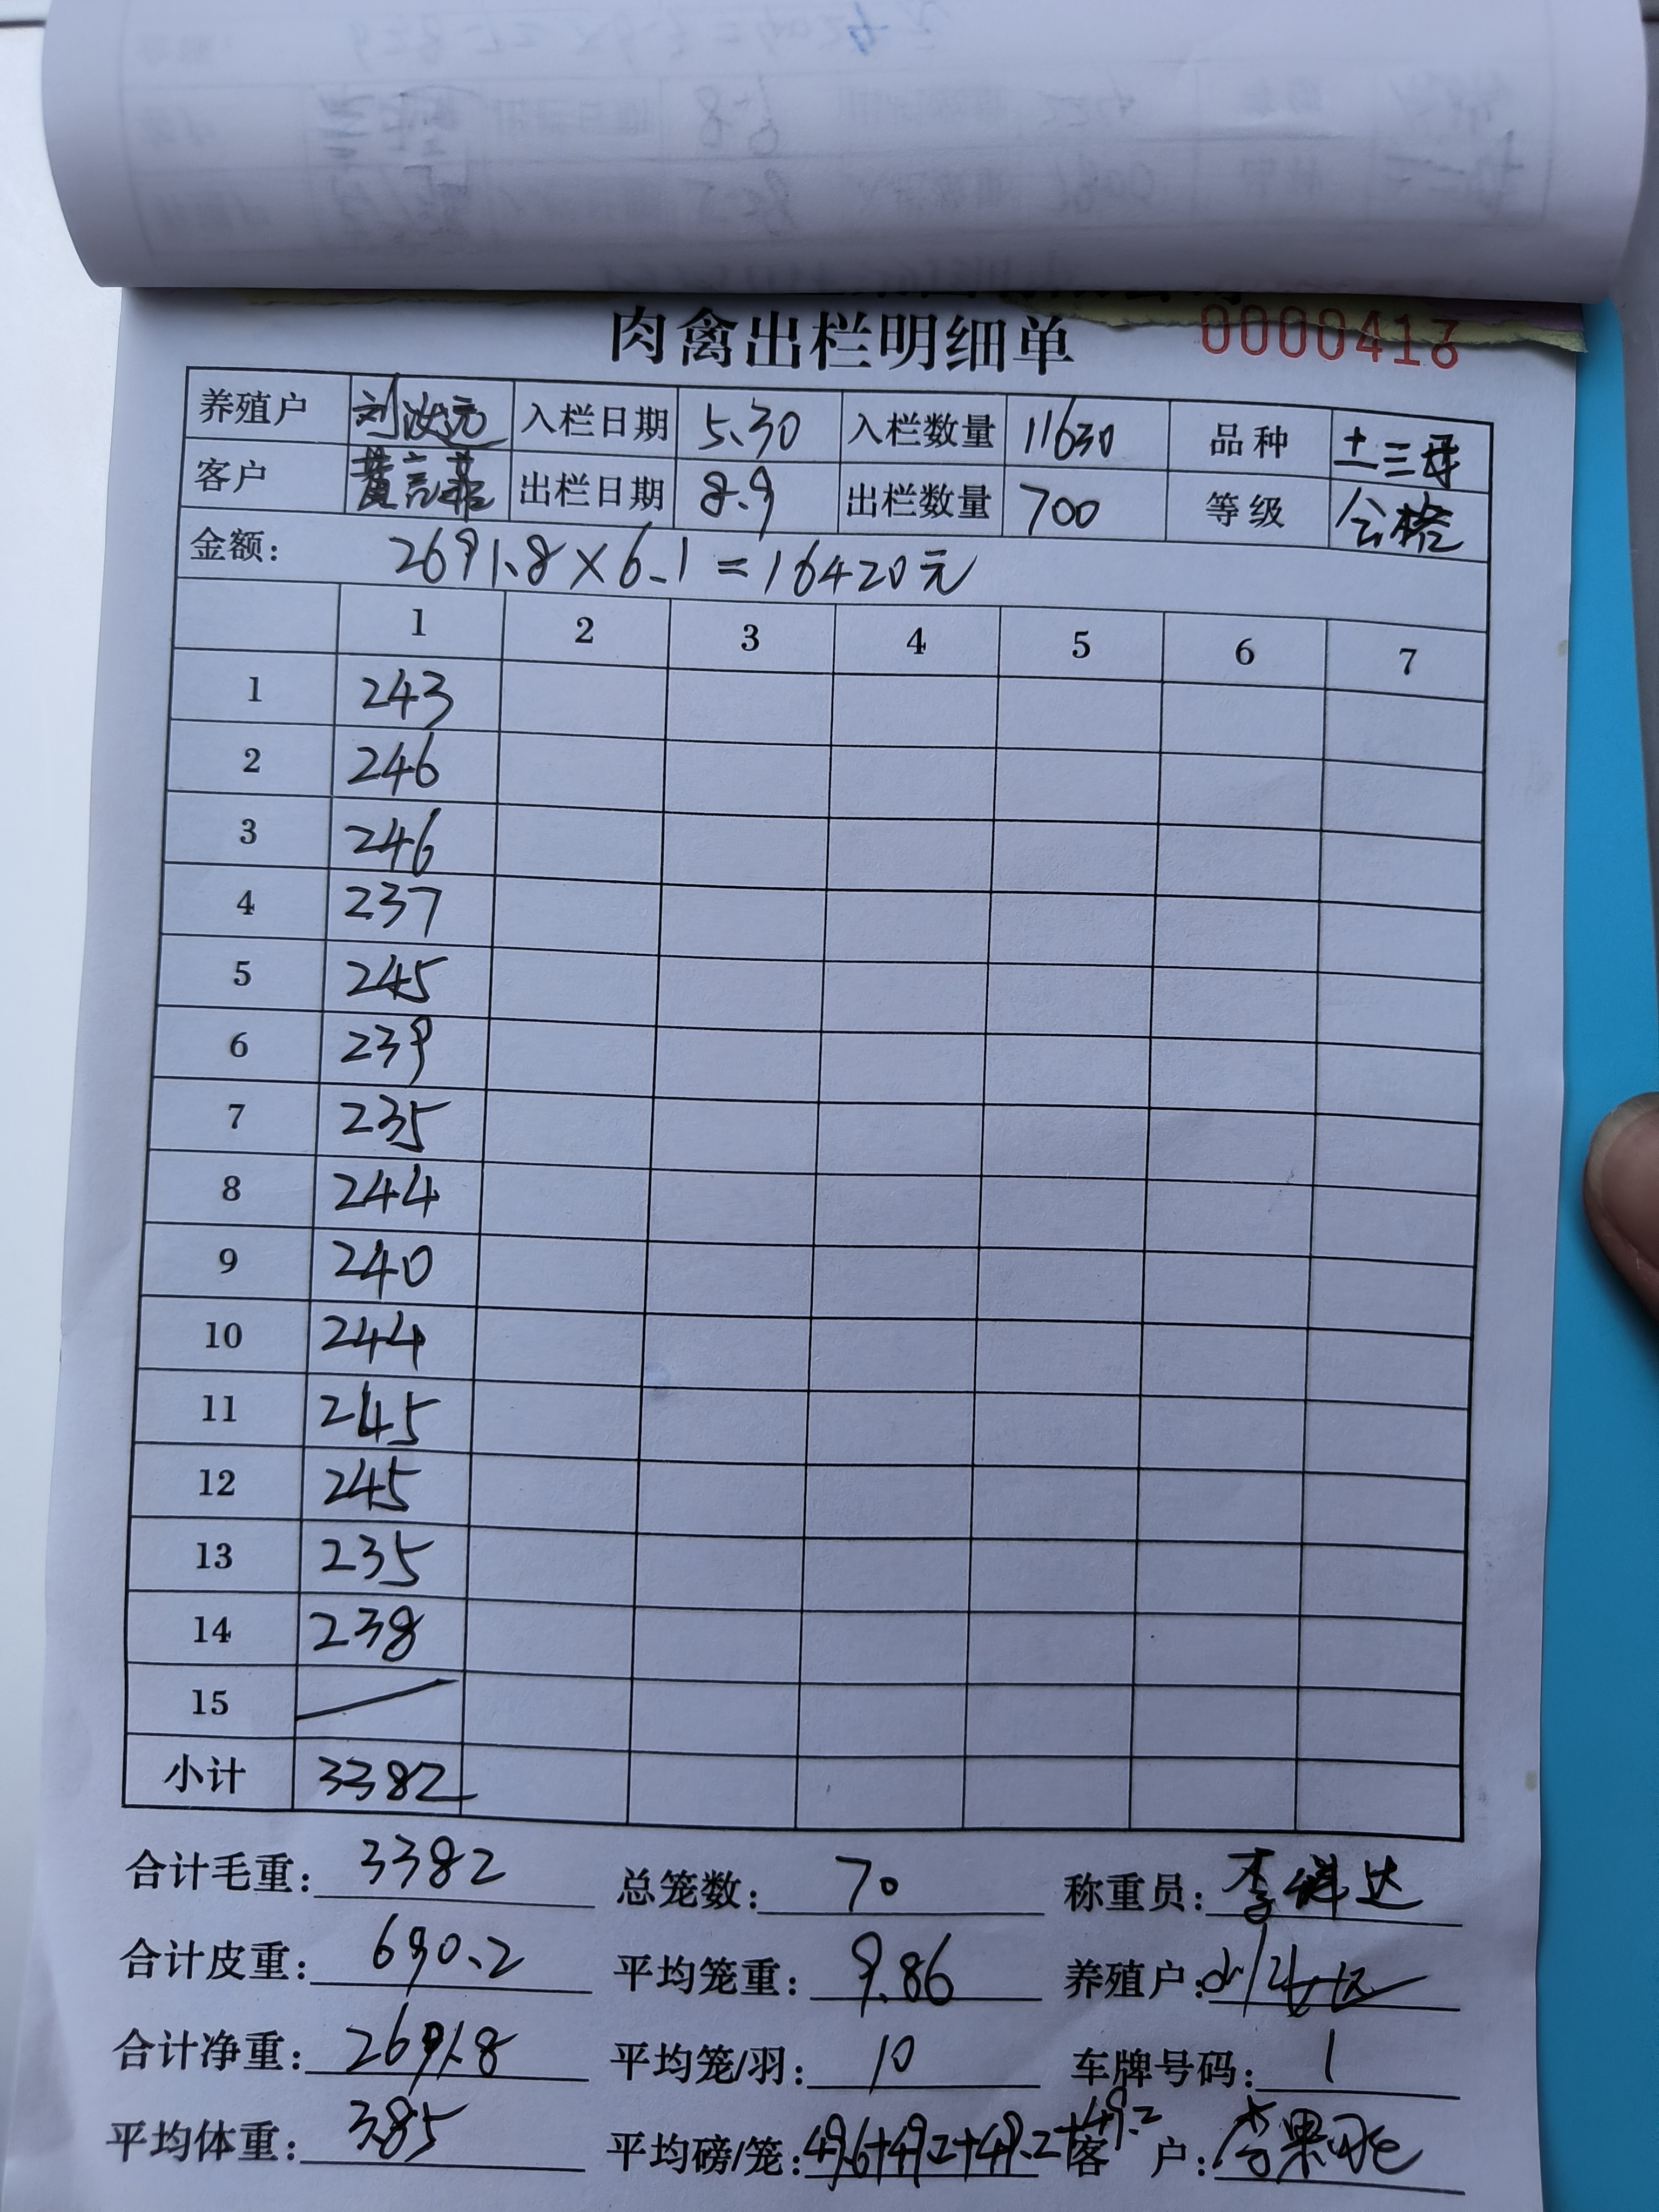 肉禽出栏明细单 0000418
养殖户 刘汝元 入栏日期 5.30 入栏数量 11630 品种 土三号
客户 黄言菲 出栏日期 8.9 出栏数量 700 等级 合格
金额: 2691.8×6.1=16420元
1 2 3 4 5 6 7
1 243
2 246
3 246
4 237
5 245
6 239
7 235
8 244
9 240
10 244
11 245
12 245
13 235
14 238
15
小计 3382
合计毛重: 3382 总笼数: 70 称重员: 李祥达
合计皮重: 690.2 平均笼重: 9.86 养殖户:
合计净重: 2691.8 平均笼/羽: 10 车牌号码: 1
平均体重: 3.85 平均磅/笼: 49.6+49.2+49.2+49.2 客户: